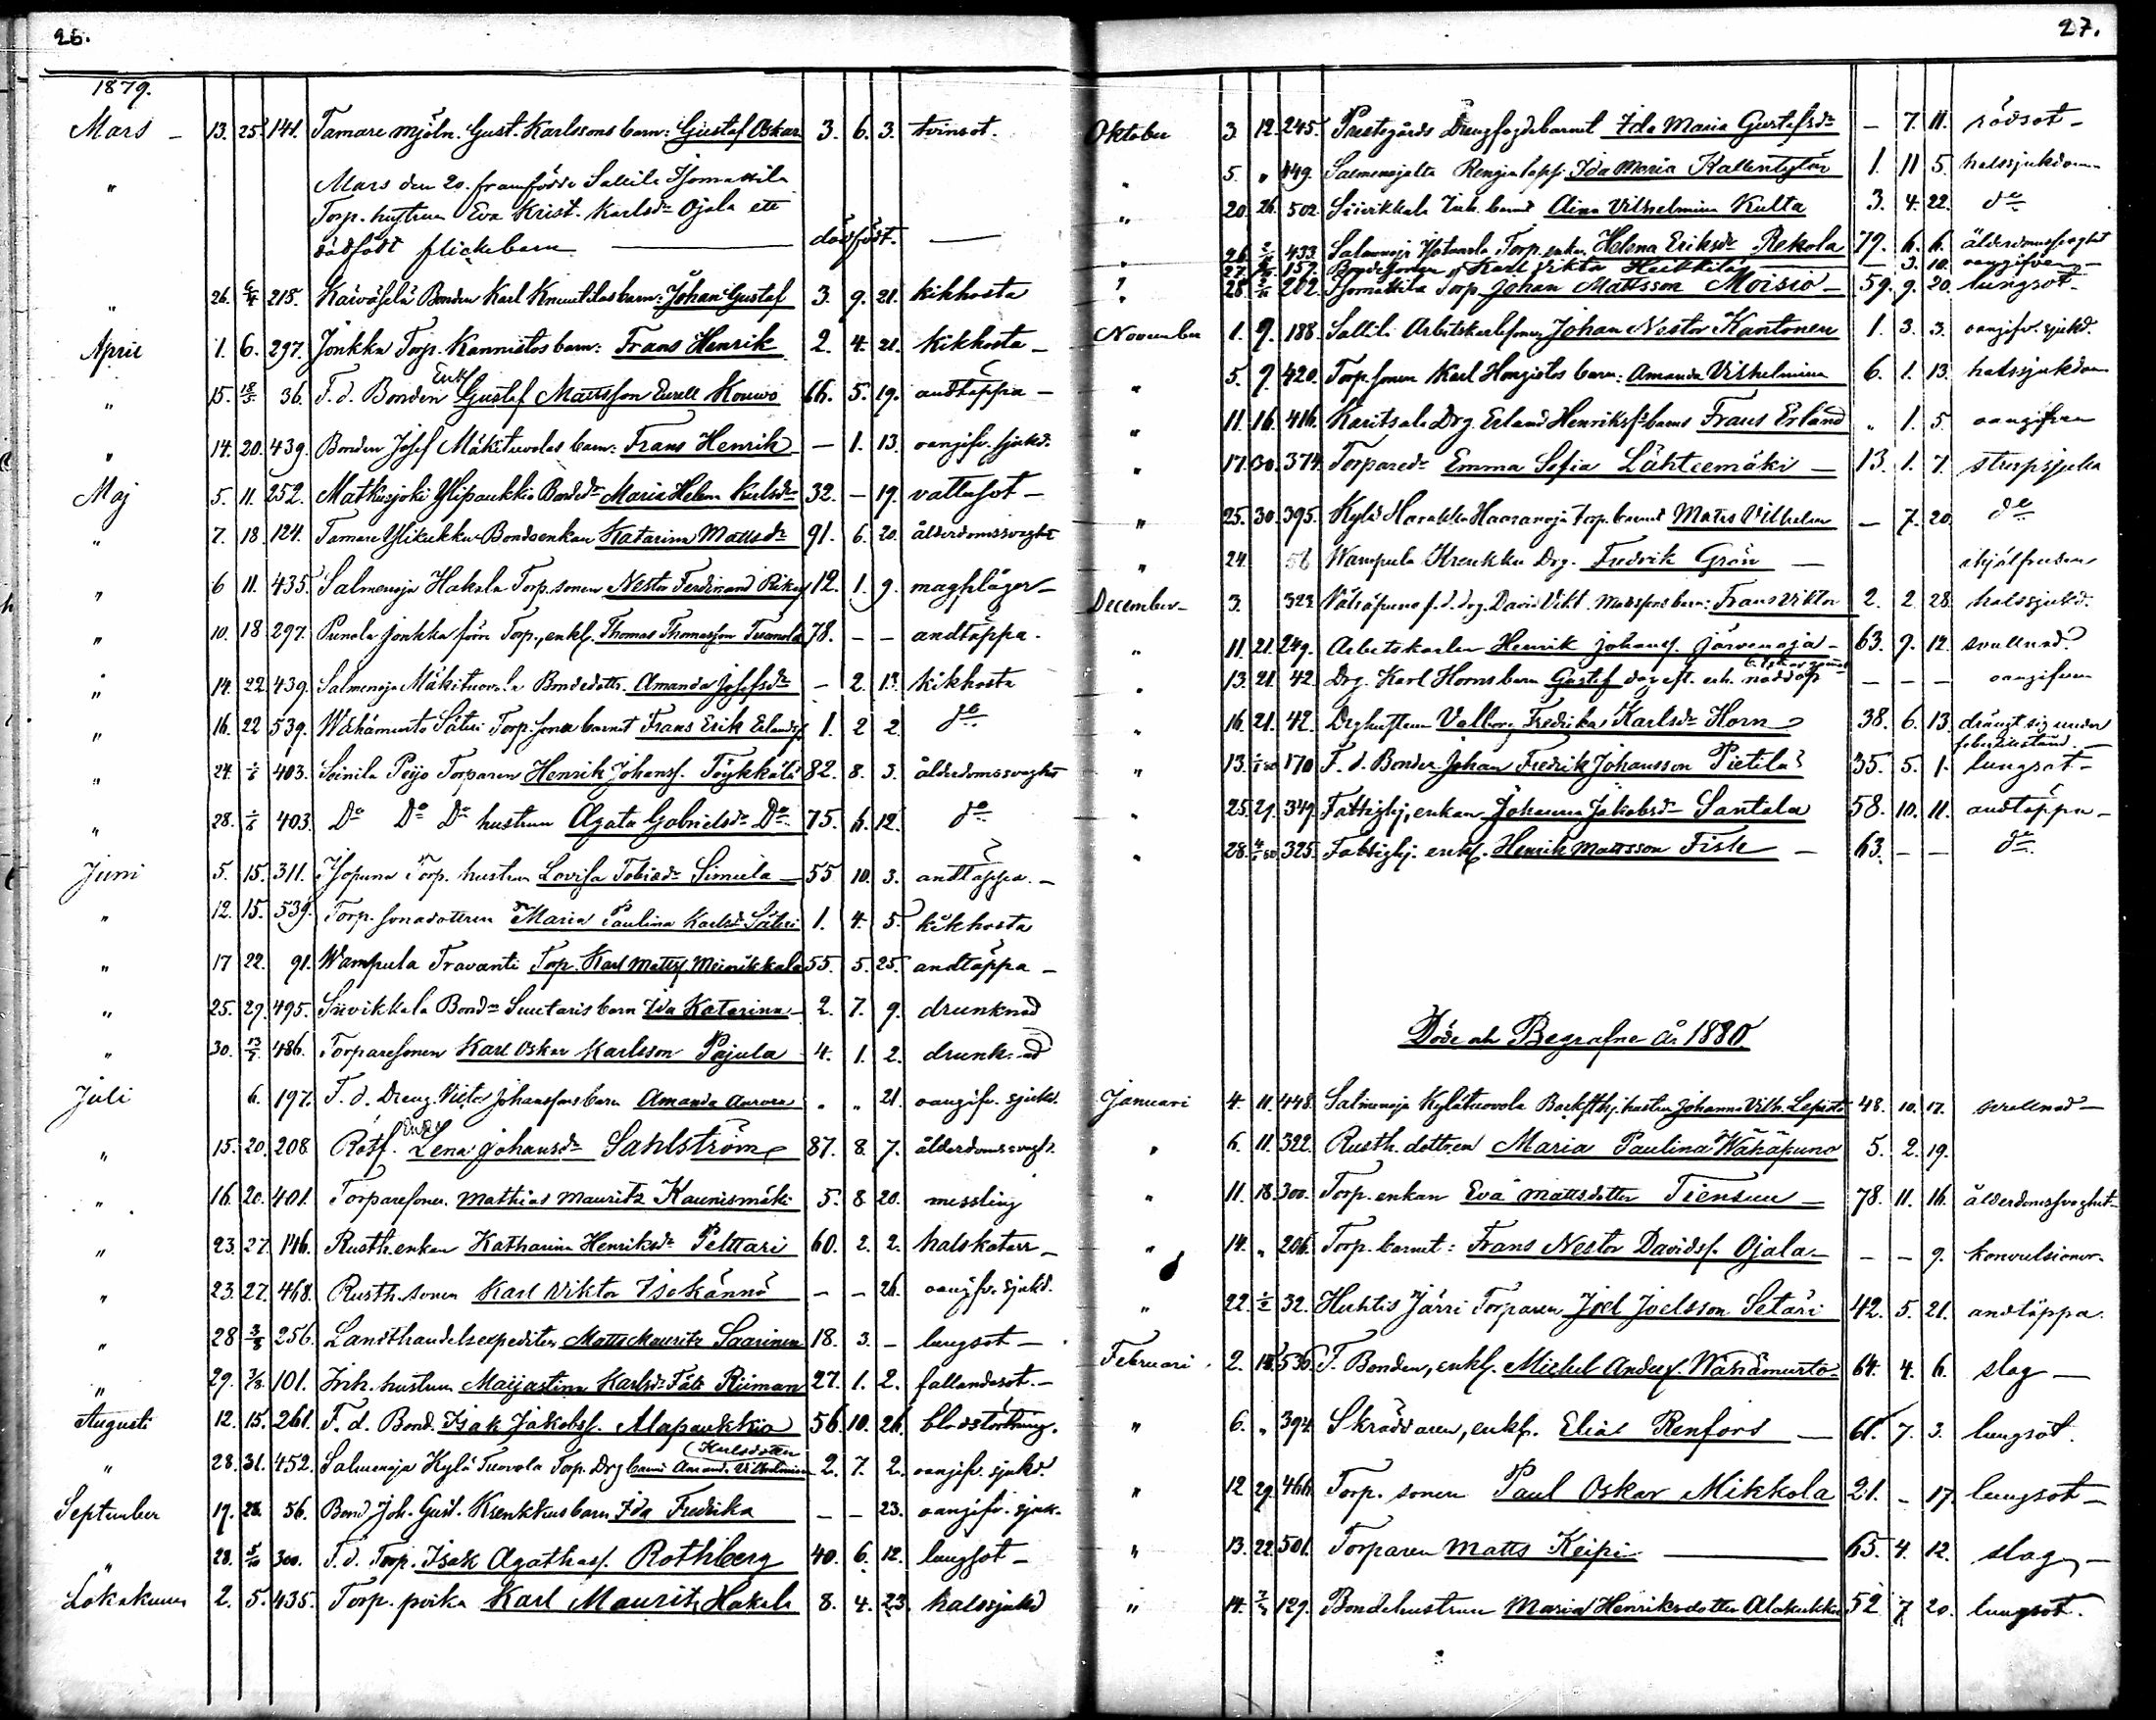 26.
1879.
Mars - 13. 25. 141. Tamare mjöln. Gust. Karlssons barn: Gustaf Oskar 3. 6. 3. tvinsot.
" Mars den 20. framfödde Sallila Isomattila
Torp. hustrun Eva Krist. Karlsdr Ojala ett
dödfödt flickebarn — dödfödt. —
" 26. 6/4 215. Karl Knuutilas barn: Johan Gustaf 3. 9. 21. kikhosta
April 1. 6. 297. Jonkka Torp. Kannistos barn: Frans Henrik 2. 4. 21. kikhosta -
" 15. 18/5 36. F. d. Bonden Enkl. Gustaf Mattsson Eurell Kouwo 66. 5. 19. andtäppa -
" 14. 20. 439. Bonden Josef Mäkituvolas barn: Frans Henrik — 1. 13. oangifv. sjukd.
Maj 5. 11. 252. Matkusjoki Ylipaukkio Bondedr Maria Helena Karlsdr 32. — 19. vattusot -
" 7. 18. 124. Tamare Ylikukku Bondeenkan Katarina Mattsdr 91. 6. 20. ålderdomssvaght
" 6 11. 435. Salmenoja Hakala Torp. sonen Nestor Ferdinand 12. 1. 9. magplåger -
" 10. 18 297. Punola Jonkka förre Torp., enkl. Thomas Thomasson Tuomola 78. — — andtäppa.
" 14. 22 439. Salmenoja Mäkituovola Bondedottr. Amanda Josefsdr — 2. 13. kikhosta
" 16. 22 539. Wähämurto Sätiri Torp. sona barnet Frans Erik Erlandss. 1. 2 2. do
" 24. 1/6 403. Soinila Peijo Torparen Henrik Johanss. Töykkälä 82. 8. 3. ålderdomssvaght
" 28. 1/6 403. Do Do Do hustrun Agata Gabrielsdr Do. 75. 6. 12. do
Juni 5. 15. 311. Isopuna Torp. hustrun Lovisa Tobiasdr Simula — 55 10. 3. andtäppa. -
" 12. 15. 539. Torp. sonadottren Maria Paulina Karlsdr Sätiri 1. 4. 5. kikhosta
" 17 22. 91. Wampula Travanti Torp. Karl Mattss. Meinikkala 55. 5. 25. andtäppa -
" 25. 29. 495. Siivikkala Bonden Suutaris barn Ida Katarina 2. 7. 9. drunknad
" 30. 13/7 486. Torparesonen Karl Oskar Karlsson Pajula 4. 1. 2. drunknad
Juli 6. 197. F. d. Dreng. Victor Johanssons barn Amanda Aurora " " 21. oangifv. sjukd.
" 15. 20. 208. Rotf. Enk. Lena Johansdr Sahlström 87. 8. 7. ålderdomssvagh.
" 16. 20. 401. Torparesonen Mathias Mauritz Kaunismäki 5. 8 20. messling
" 23. 27. 146. Rusth. enkan Katharina Henriksdr Pelttari 60. 2. 2. halskatarr -
" 23. 27. 468. Rusth. sonen Karl Viktor Isokännö — — 26. oangifv. sjukd.
" 28 3/8 256. Landthandelsexpediter Matts Mauritz Saarinen 18. 3. - lungsot -
" 29. 3/8 101. Inh. hustrun Maijastina Karlsdr Fält Riiman 27. 1. 2. fallandesot. -
Augusti 12. 15. 261. F. d. Bond. Isak Jakobss. Alapaukkio 56. 10. 26. blodstörtning.
" 28. 31. 452. Salmenoja Kylä Tuovola Torp. Drg barn Amanda Vilhelmina (Karlsdotter 2. 7. 2. oangifv. sjukd.
September 19. 28. 56. Bond Joh. Gust. Krenkkus barn Ida Fredrika — — 23. oangifv. sjuk.
" 28. 5/10 300. F. d. Torp. Isak Agathass. Rothberg 40. 6. 12. lungsot -
Lokakuun 2. 5. 435. Torp. poika Karl Mauritz Hakala 8. 4. 23. halssjukd
27.
Oktober 3. 12. 245. Prestegårds Drengfogdebarnet Ida Maria Gustafsdr — 7. 11. rödsot -
" 5. " 449. Salmenojalta Rengin lapsi Ida Maria Kallentytär 1. 11 5. halssjukdom
" 20. 26. 502. Siivikkala Inh. barnet Aina Vilhelmina Kulta 3. 4. 22. do
" 26. 2/11 433. Salmenoja Torp. enkan Helena Eriksdr Rekola 79. 6. 6. ålderdomssvaghet
" 27. 157. Bondesonen Karl Viktor Heikkilä — 3. 10. oangifven -
" 28. 2/11 202. Isomattila Torp. Johan Mattsson Moisio - 59. 9. 20. lungsot -
November 1. 9. 188. Sallila Arbetskarlssonen Johan Nestor Kantonen 1. 3. 3. oangifv. sjukd.
" 5. 9. 420. Torp. sonen Karl Hongistos barn: Amanda Vilhelmina 6. 1. 13. halssjukdom
" 11. 16. 416. Karitsala Drg. Erland Henrikss. barns Frans Erland " 1. 5. oangifven
" 17. 30. 374. Torparedr Emma Sofia Lähteemäki — 13. 1. 7. strupsjuka
" 25. 30. 395. Kylä Harakka Haaranoja Torp. barnet Matts Vilhelm — 7. 20. do
" 24. 58 Wampula Krenkku Drg. Fredrik Grön — ihjälfrusen
December - 3. 323. Vähäpuna f. d. drg. David Vikt. Mattssons barn: Frans Viktor 2. 2 28. halssjukd.
" 11. 21. 249. Arbetskarlen Henrik Johanss. Järvenoja - 63. 9. 12. svullnad
" 13. 21. 42. Drg. Karl Horns barn Gustaf dog eft. erh. nöddop — — — oangifven
" 16. 21. 42. Drghustrun Valborg Fredrika Karlsdr Horn 38. 6. 13. dränkt sig under
febertillstånd. -
" 13. 1/1 80 170 F. d. Bonden Johan Fredrik Johansson Pietilä 35. 5. 1. lungsot -
" 25. 29. 349. Fattighj. enkan Johanna Jakobsdr Santala 58. 10. 11. andtäppa -
" 28. 4/1 80 325. Fattighj. enkl. Henrik Mattsson Fisk — 63. — — do
Döde och Begrafne år 1880
Januari 4. 11. 448. Salmenoja Kylätuovola hustru Johanna Vilh. Lepistö 48. 10. 17. svullnad -
" 6. 11. 322. Rusth. dottren Maria Paulina Wähäpuna 5. 2. 19.
" 11. 18. 300. Torp. enkan Eva Mattsdotter Tiensuu — 78. 11. 16. ålderdomssvaghet -
" 14. " 206. Torp. barnet: Frans Nestor Davidss. Ojala — — — 9. konvulsioner.
" 22. 1/2 32. Huhtis Järri Torparen Joel Joelsson Setäri 42. 5. 21. andtäppa.
Februari. 2. 15. 536. F. Bonden, enkl. Michel Anderss. Wähämurto 64. 4. 6. slag —
" 6. " 394. Skräddaren, enkl. Elias Renfors — 61. 7. 3. lungsot.
" 12 29. 466. Torp. sonen Paul Oskar Mikkola 21. - 17. lungsot -
" 13. 22. 501. Torparen Matts Keipi — 65. 4. 12. slag -
" 14. 7/3 129. Bondehustrun Maria Henriksdotter Alakukku 52 7 20. lungsot.